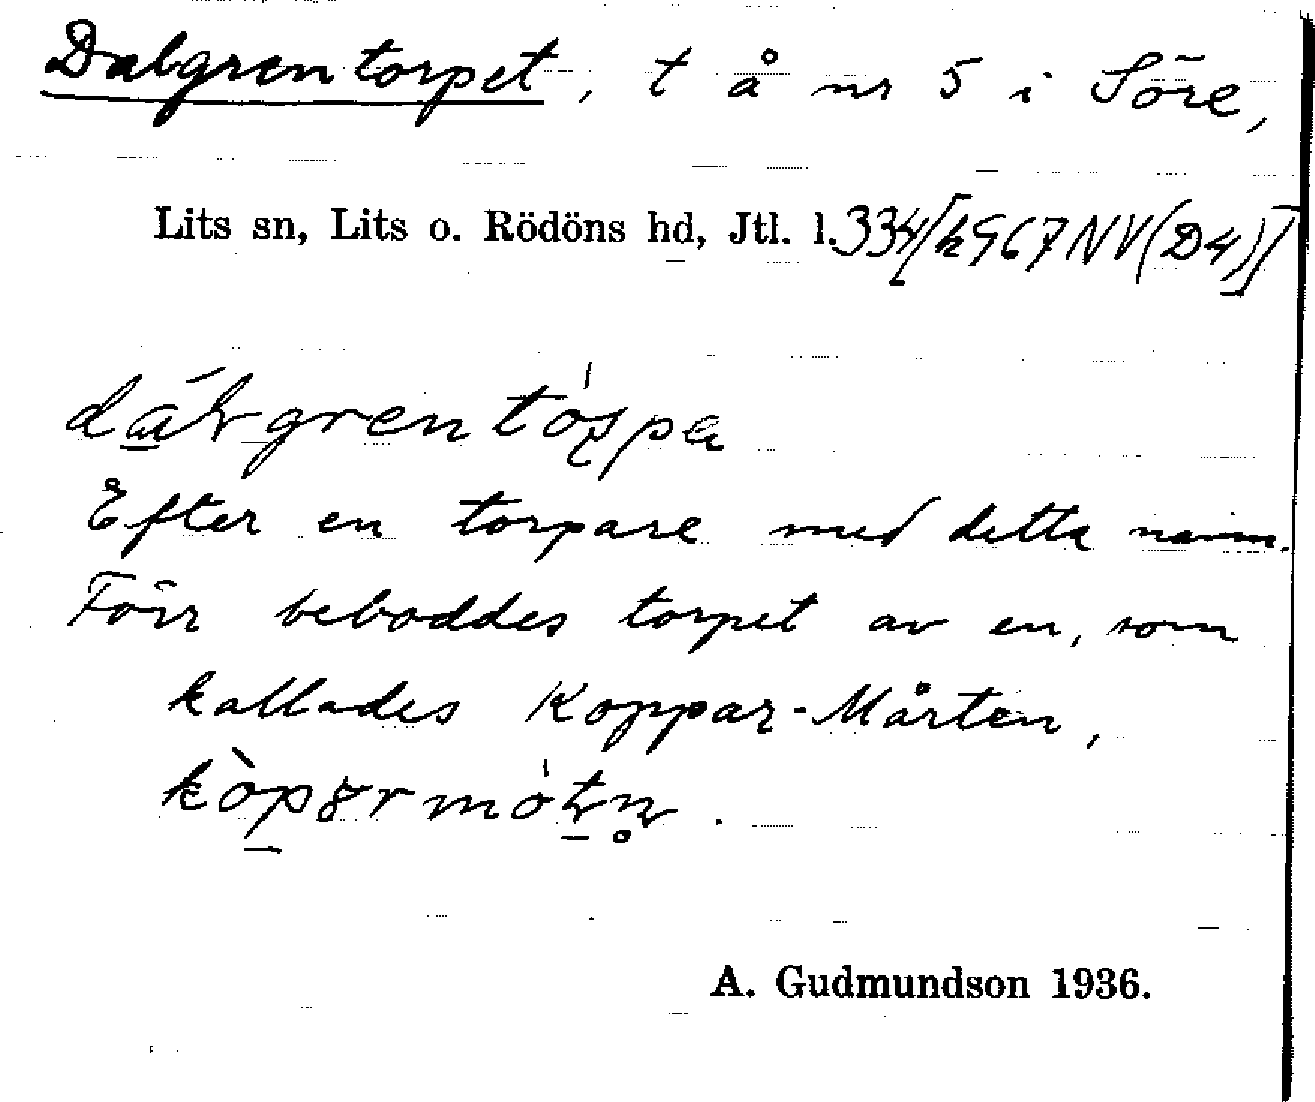 Dalgrentorpet, t å nr 5 i Söre,
Lits sn, Lits o. Rödöns hd, Jtl. l. 334 [h967NV(D4)]
Efter en torpare med detta namn.
Förr beboddes torpet av en, som
kallades Koppar-Mårten,
A. Gudmundson 1936.